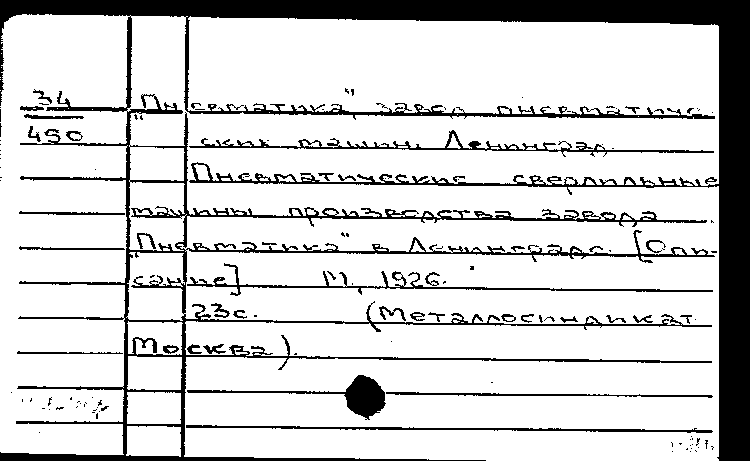 34
450
"Пневматика", завод пневматиче-
ских машин. Ленинград.
Пневматические сверлильные
машины производства завода
"Пневматика" в Ленинграде. [Опи-
сание] М., 1926.
23с. (Металлосиндикат
Москва).